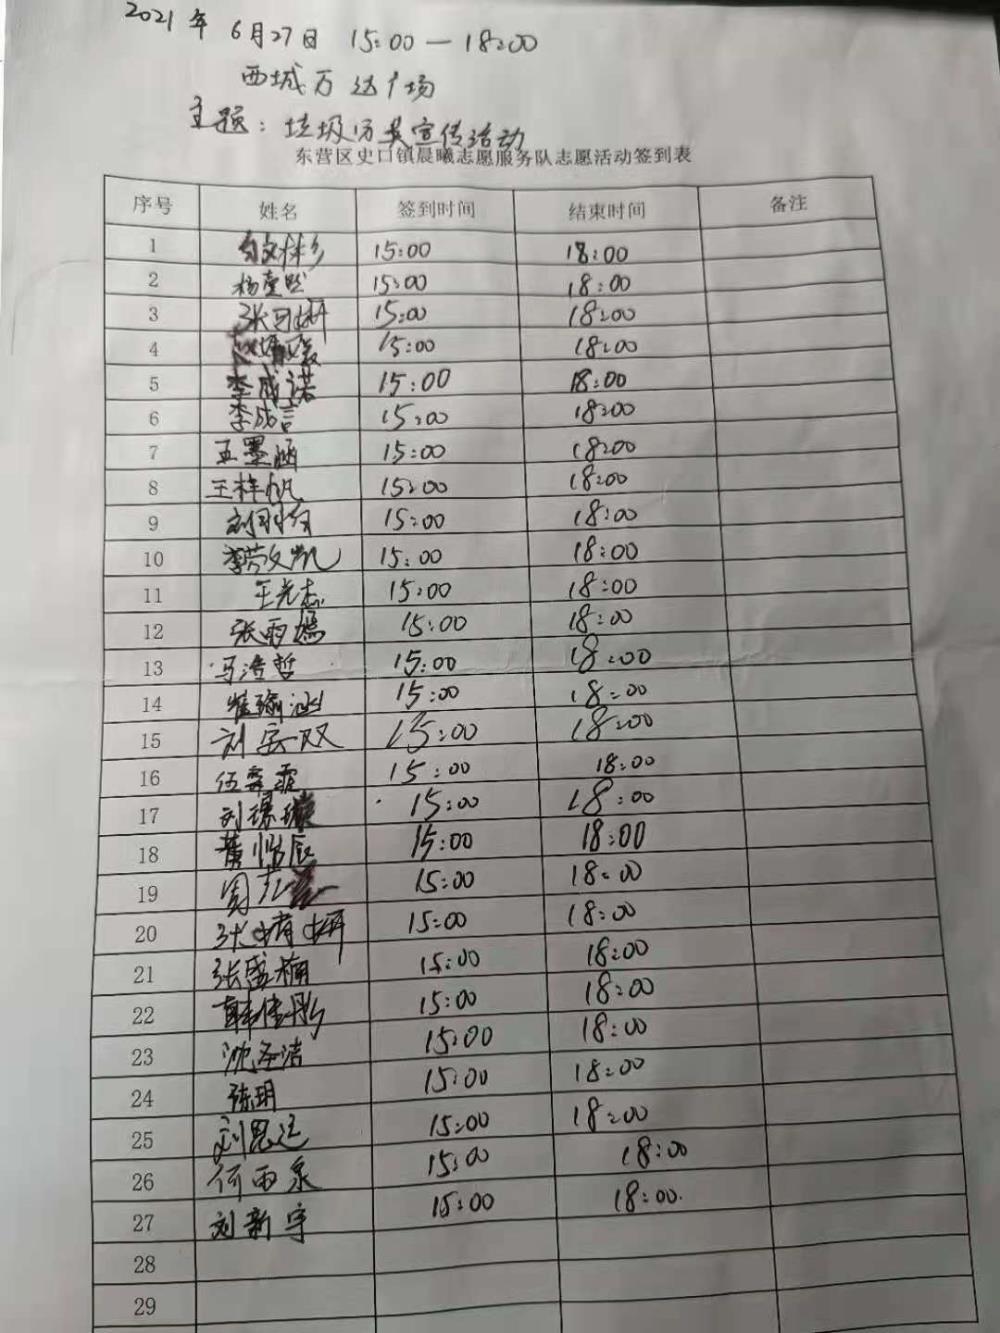 2021年 6月27日 15:00—18:00
西城万达广场
主题：垃圾分类宣传活动
东营区史口镇晨曦志愿服务队志愿活动签到表
序号 姓名 签到时间 结束时间 备注
1 15:00 18:00
2 杨童 15:00 18:00
3 张 15:00 18:00
4 15:00 18:00
5 李成诺 15:00 18:00
6 李成言 15:00 18:00
7 王墨涵 15:00 18:00
8 王梓帆 15:00 18:00
9 刘 15:00 18:00
10 李 凯 15:00 18:00
11 王光志 15:00 18:00
12 张雨嫣 15:00 18:00
13 马浩哲 15:00 18:00
14 崔瑜涵 15:00 18:00
15 刘安双 15:00 18:00
16 伍 霏 15:00 18:00
17 刘璟璇 15:00 18:00
18 黄怡辰 15:00 18:00
19 周 15:00 18:00
20 张婧妍 15:00 18:00
21 张盛楠 15:00 18:00
22 韩佳彤 15:00 18:00
23 沈圣洁 15:00 18:00
24 陈玥 15:00 18:00
25 刘思廷 15:00 18:00
26 何雨泉 15:00 18:00
27 刘新宇 15:00 18:00.
28
29